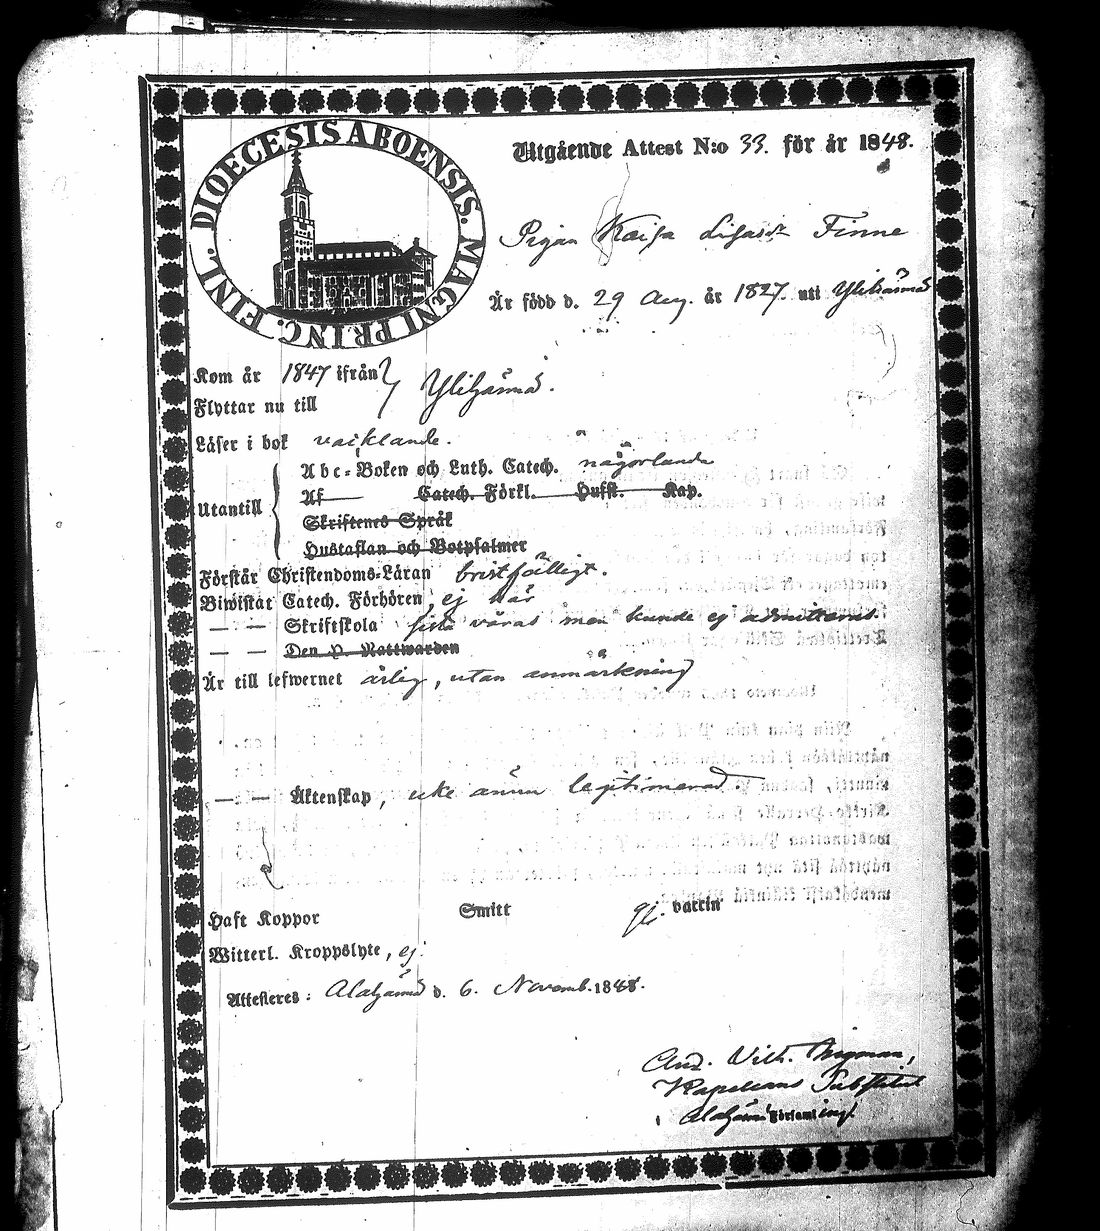 DIOECESIS ABOENSIS. MAGNI PRINC. FINL.
Utgående Attest N:o 33. för år 1848.
Pigan Kaisa Lisa Finne
Är född d. 29 Aug. år 1827. uti Ylihärmä
Kom år 1847 ifrån
Flyttar nu till
Ylihärmä.
Läser i bok
Utantill
Abc-Boken och Luth. Catech. någorlunda
Af Catech. Förkl. Husst. Kap.
Skriftenes Språk
Hustaflan och Botpsalmer
Förstår Christendoms-Läran bristfälligt.
Biwistat Catech. Förhören, ej här
— — Skriftskola men kunde ej admitteras.
— — Den H. Nattwarden
Är till lefwernet ärlig, utan anmärkning
— — Äktenskap, icke ännu legitimerad.
Haft Koppor Smitt ej. vaccin
Witterl. Kroppslyte, ej.
Attesteras: Alahärmä d. 6. Novemb. 1848.
And. Wilh. Ingman,
Kapellans Substitut
Alahärmä Församling.